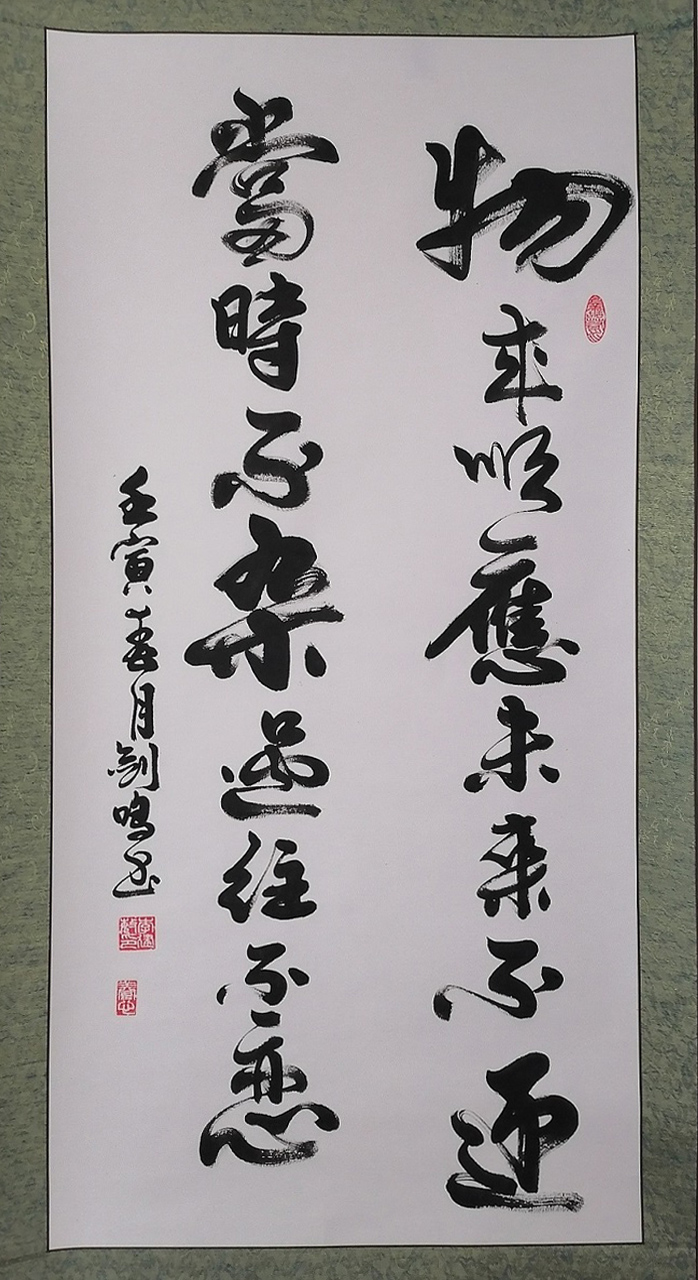 物来順應未來不迎
當時不杂過往不恋
壬寅春月劍鳴書